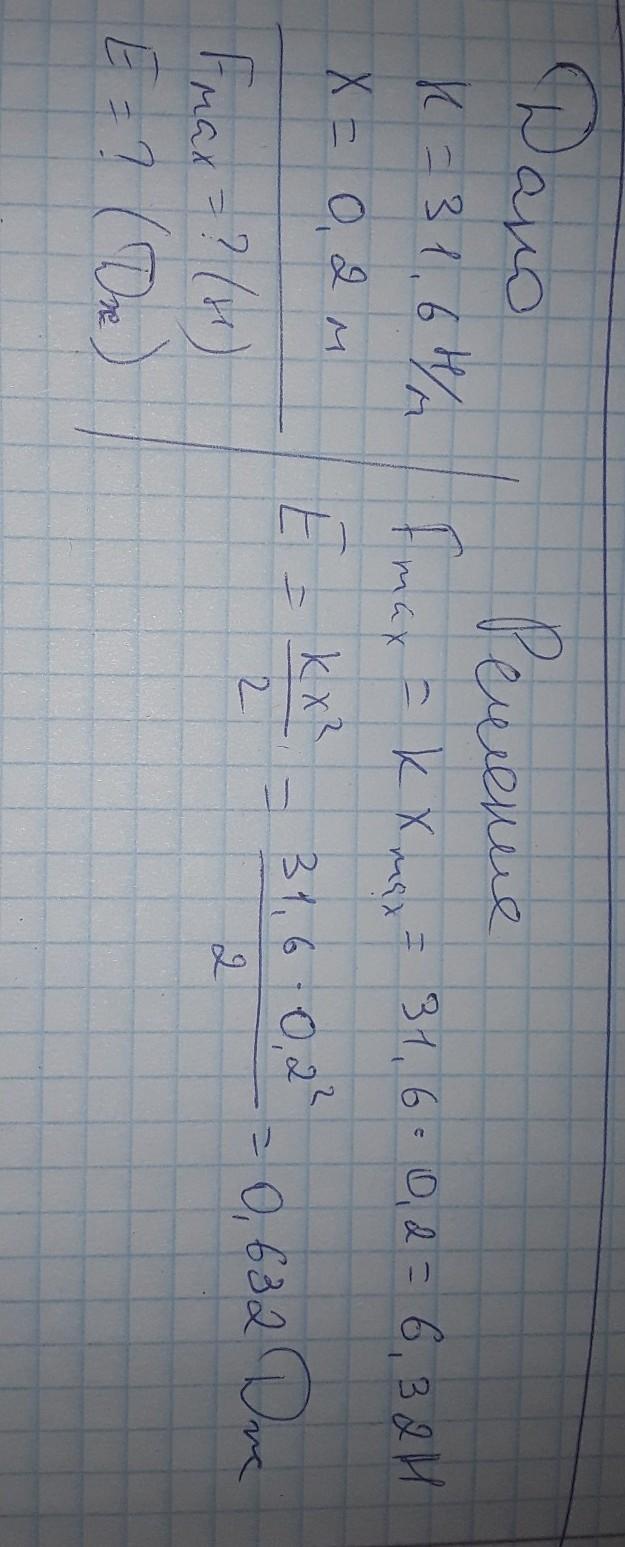 Дано
K = 31,6 Н/м
X = 0,2 м
Fmax = ? (н)
E = ? (Дж)
Решение
Fmax = k xmax = 31,6 · 0,2 = 6,32 Н
E = kx²/2 = 31,6 · 0,2²/2 = 0,632 Дж